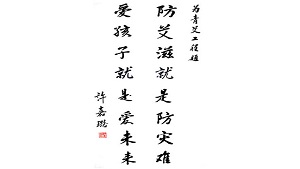 为青艾工程题
防艾滋就是防灾难
愛孩子就是愛未来
许嘉璐